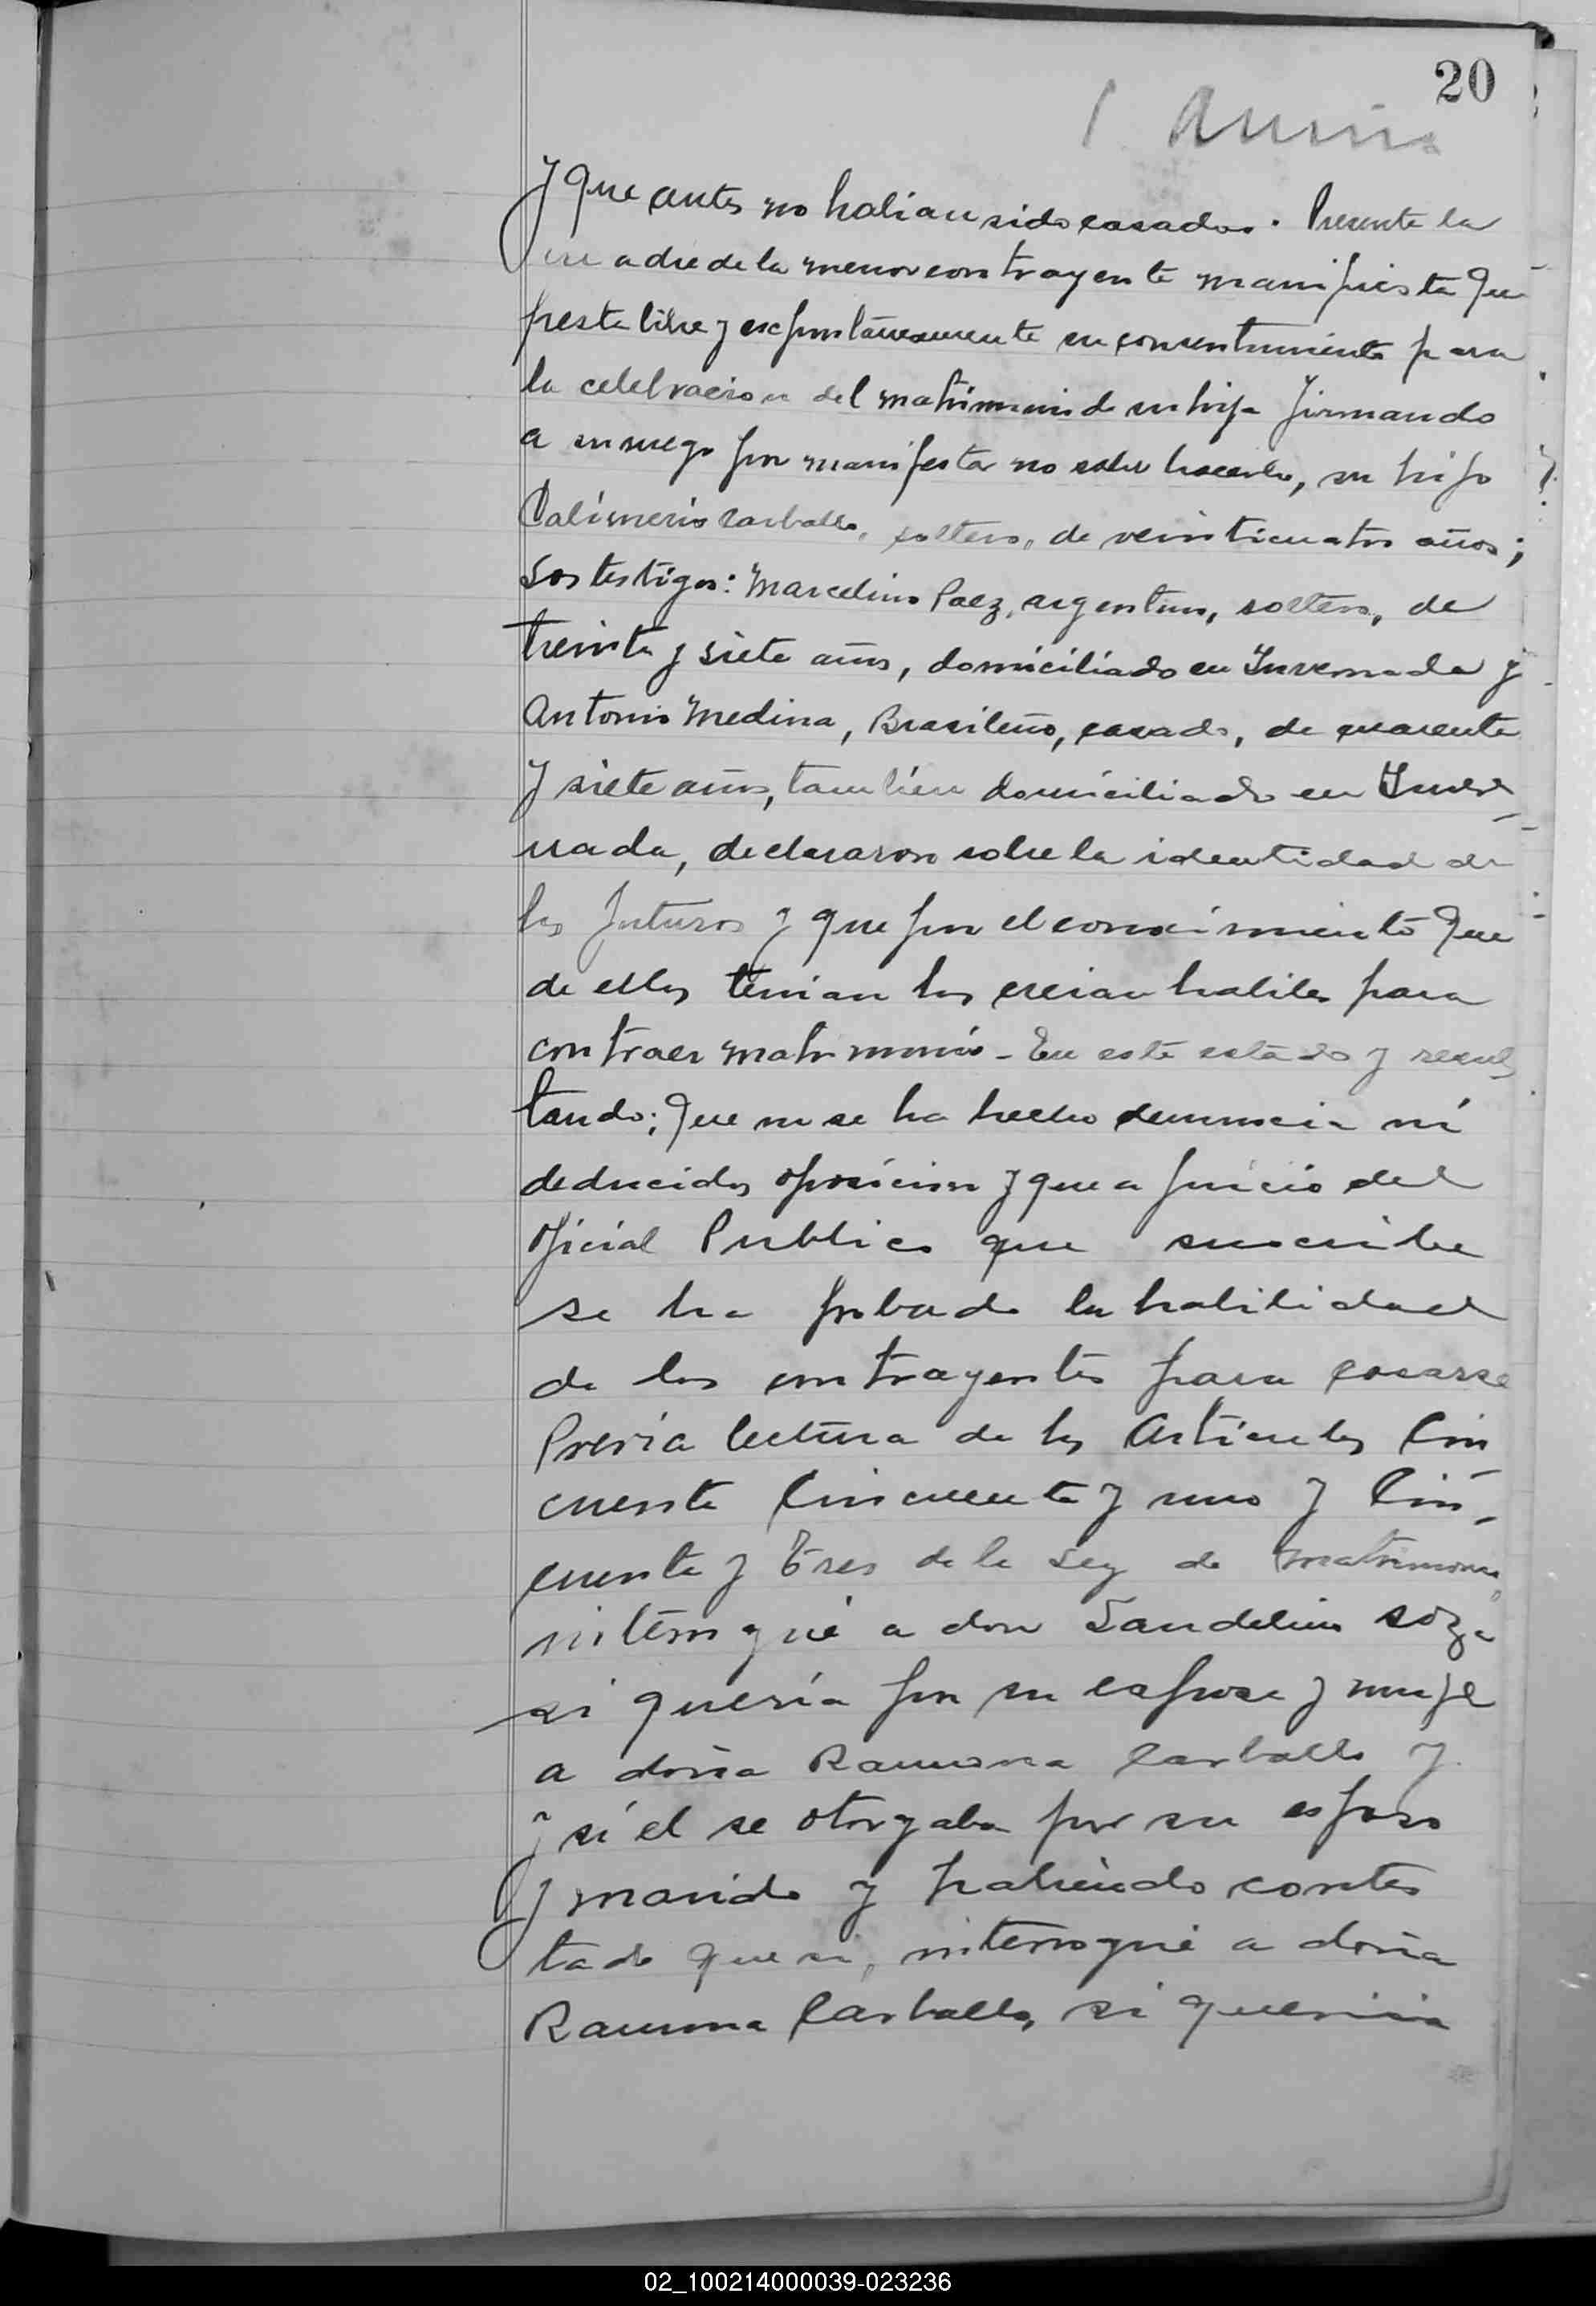 20
y que antes no habian sido casados. Presente la
madre de la menor contrayente manifiesta que
presta libre y espontaneamente su consentimiento para
la celebracion del matrimonio de su hija firmando
a su ruego por manifestar no saber hacerlo, su hijo
Calimerio Carballo, soltero, de veinticuatro años;
Los testigos: Marcelino Paez, argentino, soltero, de
treinta y siete años, domiciliado en Invernada y
Antonio Medina, Brasileño, casado, de cuarenta
y siete años, tambien domiciliado en Inver-
nada, declararon sobre la identidad de
los futuros y que por el conocimiento que
de ellos tenian los creian habiles para
contraer matrimonio - En este estado y resul-
tando; que no se ha hecho denuncia ni
deducidos oposicion y que a juicio del
oficial Publico que suscribe
se ha probado la habilidad
de los contrayentes para casarse
Previa lectura de los Articulos Cin-
cuenta Cincuenta y uno y Cin-
cuenta y Tres de la Ley de Matrimonio,
interrogué a don Landelino Soza
si quería por su esposa y mujer
a doña Ramona Carballo y
y si el se otorgaba por su esposo
y marido y habiendo contes
tado que si, interrogué a doña
Ramona Carballo, si queria
02_100214000039-023236